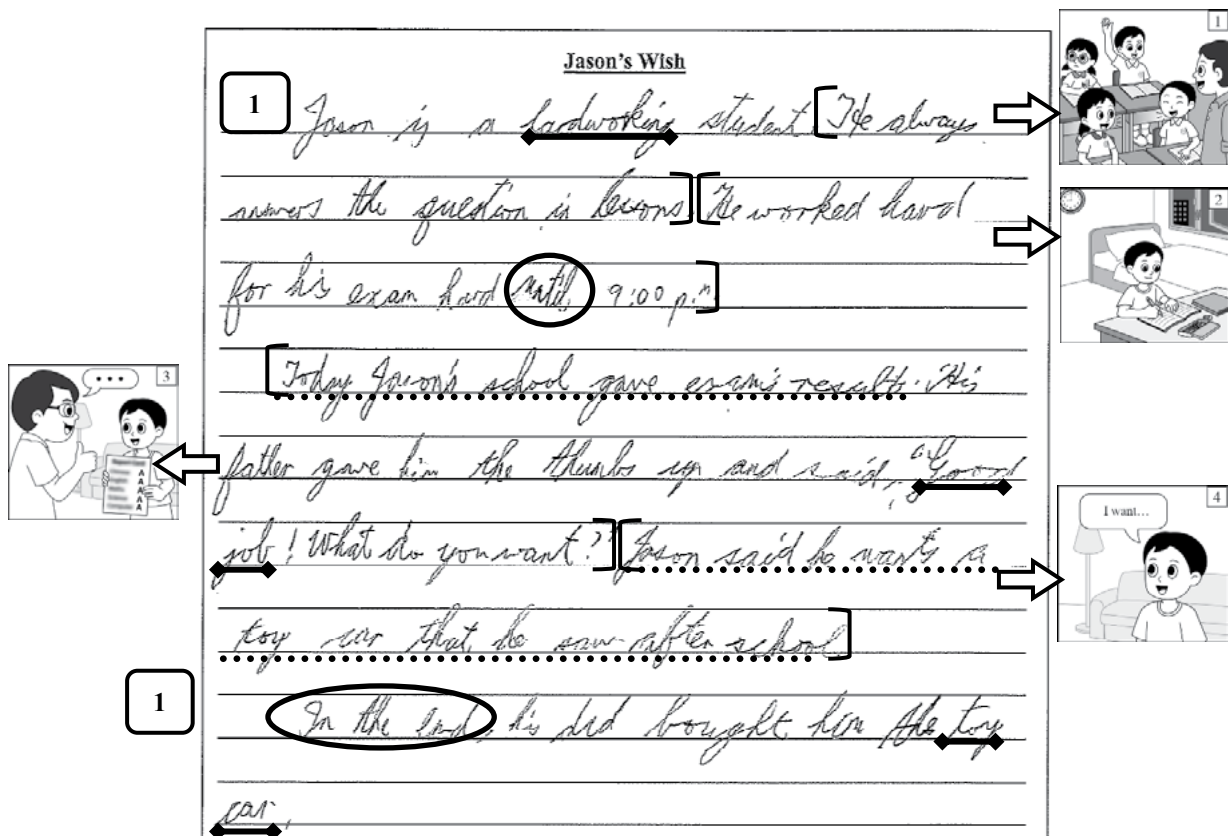 Jason's Wish
1
Jason is a hardworking student. He always
answers the question in lessons. He worked hard
for his exam hard until 9:00 p.m.
Today Jason's school gave exam's results. His
father gave him the thumbs up and said, "Good
job! What do you want?" Jason said he wants a
toy car that he saw after school.
1
In the end, his dad bought him the toy
car.
1
2
3
A
A
A
A
A
4
I want...